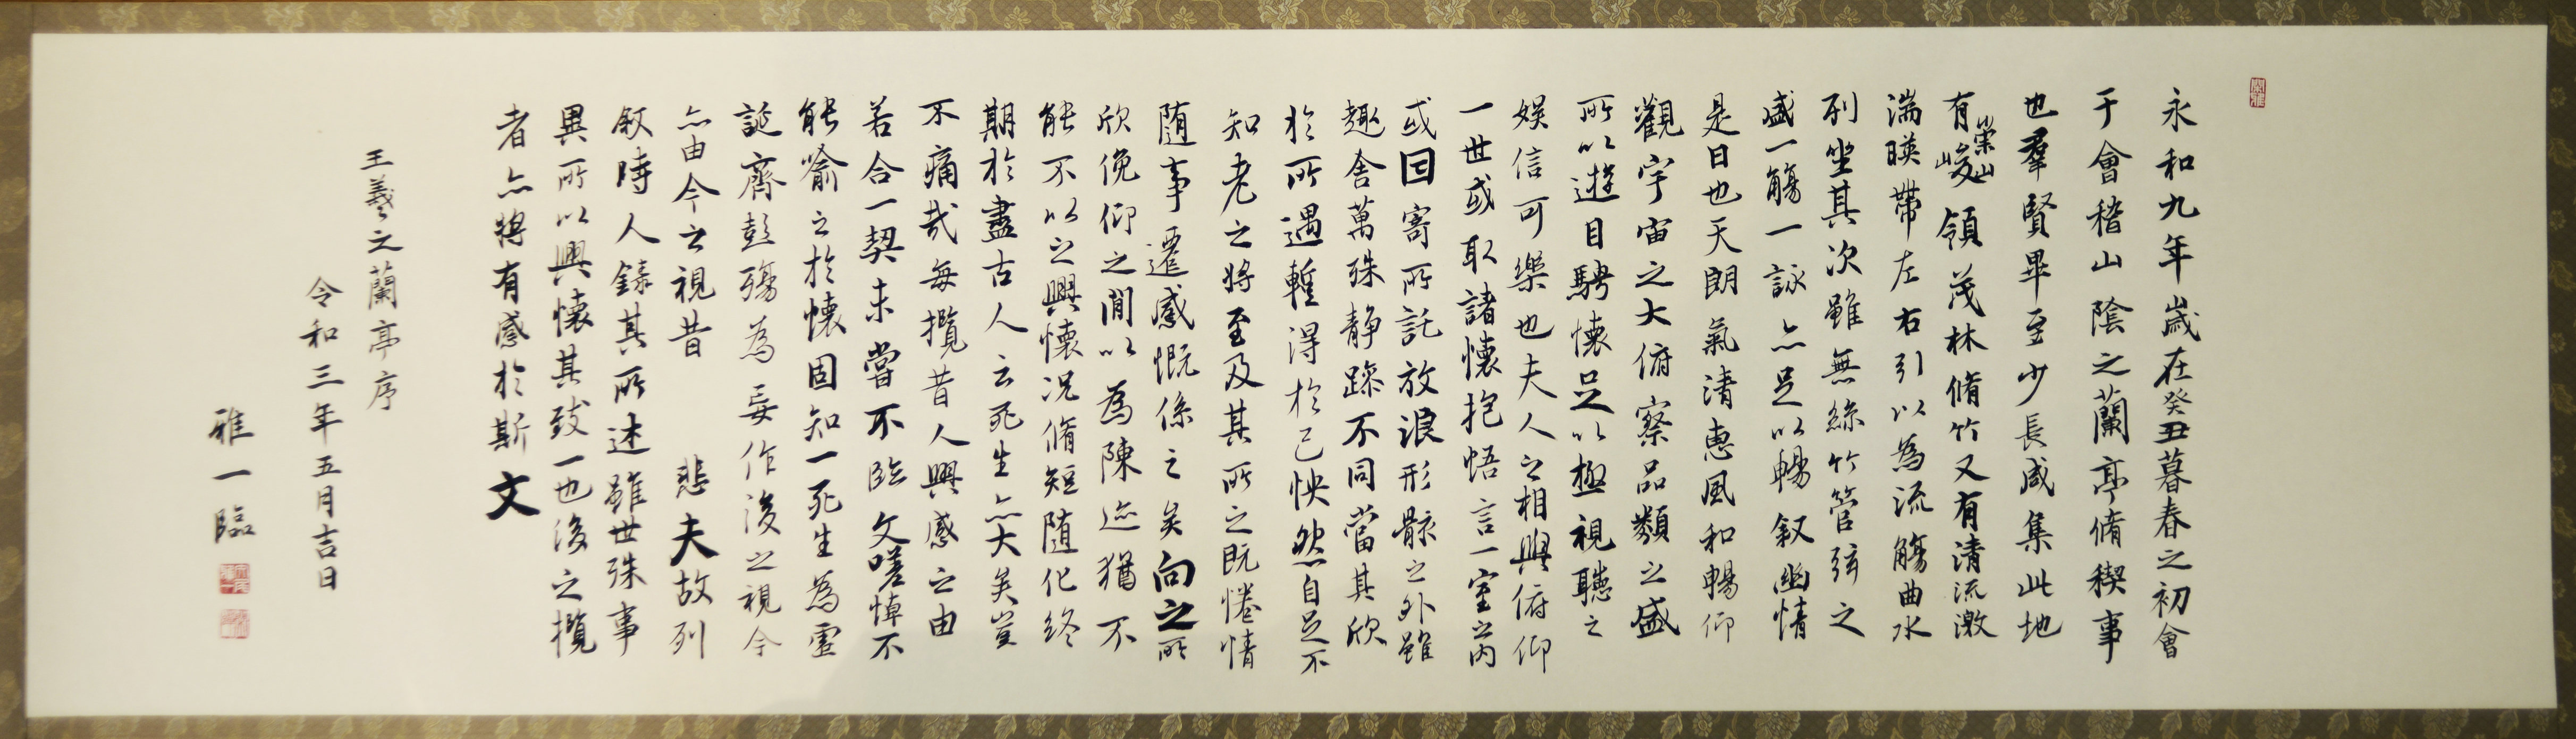 永和九年歲在癸丑暮春之初會
于會稽山陰之蘭亭脩稧事
也羣賢畢至少長咸集此地
有崇山峻領茂林脩竹又有清流激
湍暎帶左右引以為流觴曲水
列坐其次雖無絲竹管弦之
盛一觴一詠亦足以暢叙幽情
是日也天朗氣清惠風和暢仰
觀宇宙之大俯察品類之盛
所以遊目騁懷足以極視聽之
娛信可樂也夫人之相與俯仰
一世或取諸懷抱悟言一室之內
或因寄所託放浪形骸之外雖
趣舍萬殊静躁不同當其欣
於所遇暫得於己怏然自足不
知老之將至及其所之既惓情
随事遷感慨係之矣向之所
欣俛仰之閒以為陳迹猶不
能不以之興懷況脩短随化終
期於盡古人云死生亦大矣豈
不痛哉每攬昔人興感之由
若合一契未嘗不臨文嗟悼不
能喻之於懷固知一死生為虛
誕齊彭殤為妄作後之視今
亦由今之視昔 悲夫故列
叙時人錄其所述雖世殊事
異所以興懷其致一也後之攬
者亦將有感於斯文
王羲之蘭亭序
令和三年五月吉日
雅一臨